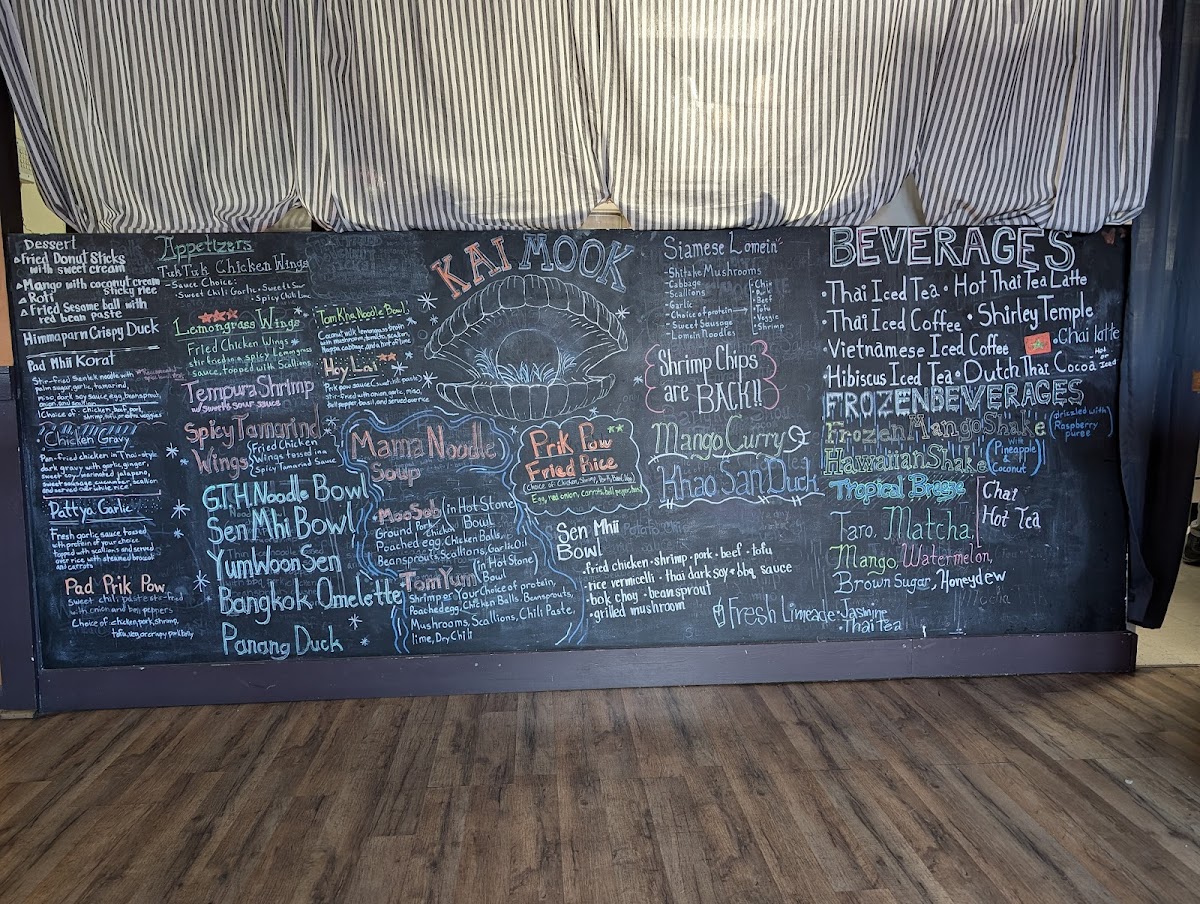 Dessert
Fried Donut Sticks
with sweet cream
Mango with coconut cream
sticky rice
Roti
Fried Sesame ball with
red bean paste
Himmaparn Crispy Duck
Pad Mhii Korat
Stir-fried Senlek noodle with
palm sugar, garlic, tamarind,
miso, dark soy sauce, egg, beansprout,
onion, and scallion
(Choice of: chicken, beef, pork,
shrimp, tofu, or veggies
Chicken Gravy
Pan-fried chicken in Thai-style
dark gravy with garlic, ginger,
sweet soy, marinated jalapeno,
sweet sausage, cucumber, scallion
and served over white rice
Pattya Garlic
Fresh garlic sauce tossed
with protein of your choice
topped with scallions and served
over rice with steamed broccoli
and carrots
Pad Prik Pow
Sweet chili paste stir-fried
with onion and bell peppers
Choice of: chicken, pork, shrimp,
tofu, veg, or crispy pork belly
Appetizers
TukTuk Chicken Wings
Sauce Choice:
Sweet Chili Garlic
Spicy Chili Lime
Lemongrass Wings
Fried Chicken Wings
stir fried in a spicy lemongrass
sauce, topped with Scallions
Tempura Shrimp
w/ Sweet & Sour Sauce
Spicy Tamarind
Wings
Fried Chicken
Wings tossed in a
Spicy Tamarind Sauce
G.T.H. Noodle Bowl
Sen Mhi Bowl
Yum Woon Sen
Bangkok Omelette
Panang Duck
Tom Kha Noodle Bowl
Coconut milk lemongrass broth
with mushroom, tomato,
Nappa cabbage, and hint of lime
Hoy Lai
Prik pow sauce (sweet chili paste)
stir-fried with onion, garlic, miso,
bell pepper, basil, and served over rice
Mama Noodle
Soup
MooSab (in Hot Stone
Bowl
Ground Pork, Chicken
Poached egg, Chicken Balls,
Beansprouts, Scallions, Garlic Oil
Tom Yum (in Hot Stone)
Bowl
Shrimp or Your Choice of protein,
Poached egg, Chicken Balls, Beansprouts,
Mushrooms, Scallions, Chili Paste,
lime, Dry Chili
KAI MOOK
Prik Pow
Fried Rice
Egg, red onion, carrots, bell pepper, basil
Sen Mhii
Bowl
fried chicken · shrimp · pork · beef · tofu
rice vermicelli · thai dark soy & bbq sauce
bok choy · bean sprout
grilled mushroom
Siamese Lomein
Shitake Mushrooms
Cabbage
Scallions
Garlic
Choice of protein
Sweet Sausage
Lomein Noodles
Chix
Pork
Beef
Tofu
Veggie
Shrimp
Shrimp Chips
are BACK!!
Mango Curry
Khao San Duck
Fresh Limeade · Jasmine
· Thai Tea
BEVERAGES
· Thai Iced Tea · Hot Thai Tea Latte
· Thai Iced Coffee · Shirley Temple
· Vietnamese Iced Coffee · Chai latte
· Hibiscus Iced Tea · Dutch Thai Cocoa Hot and Iced
FROZEN BEVERAGES
Frozen Mango Shake (drizzled with
Raspberry
puree)
Hawaiian Shake (with
Pineapple
&
Coconut)
Tropical Breeze
Chai
Hot Tea
Taro, Matcha,
Mango, Watermelon,
Brown Sugar, Honeydew